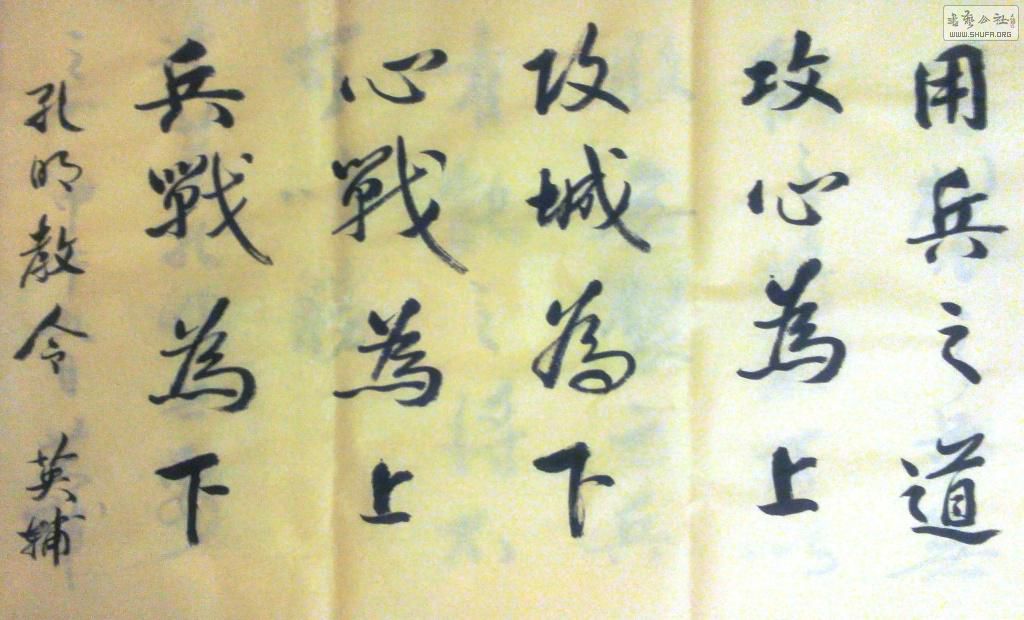 用兵之道
攻心為上
攻城為下
心戰為上
兵戰為下
孔明教令 英輔
WWW.SHUFA.ORG